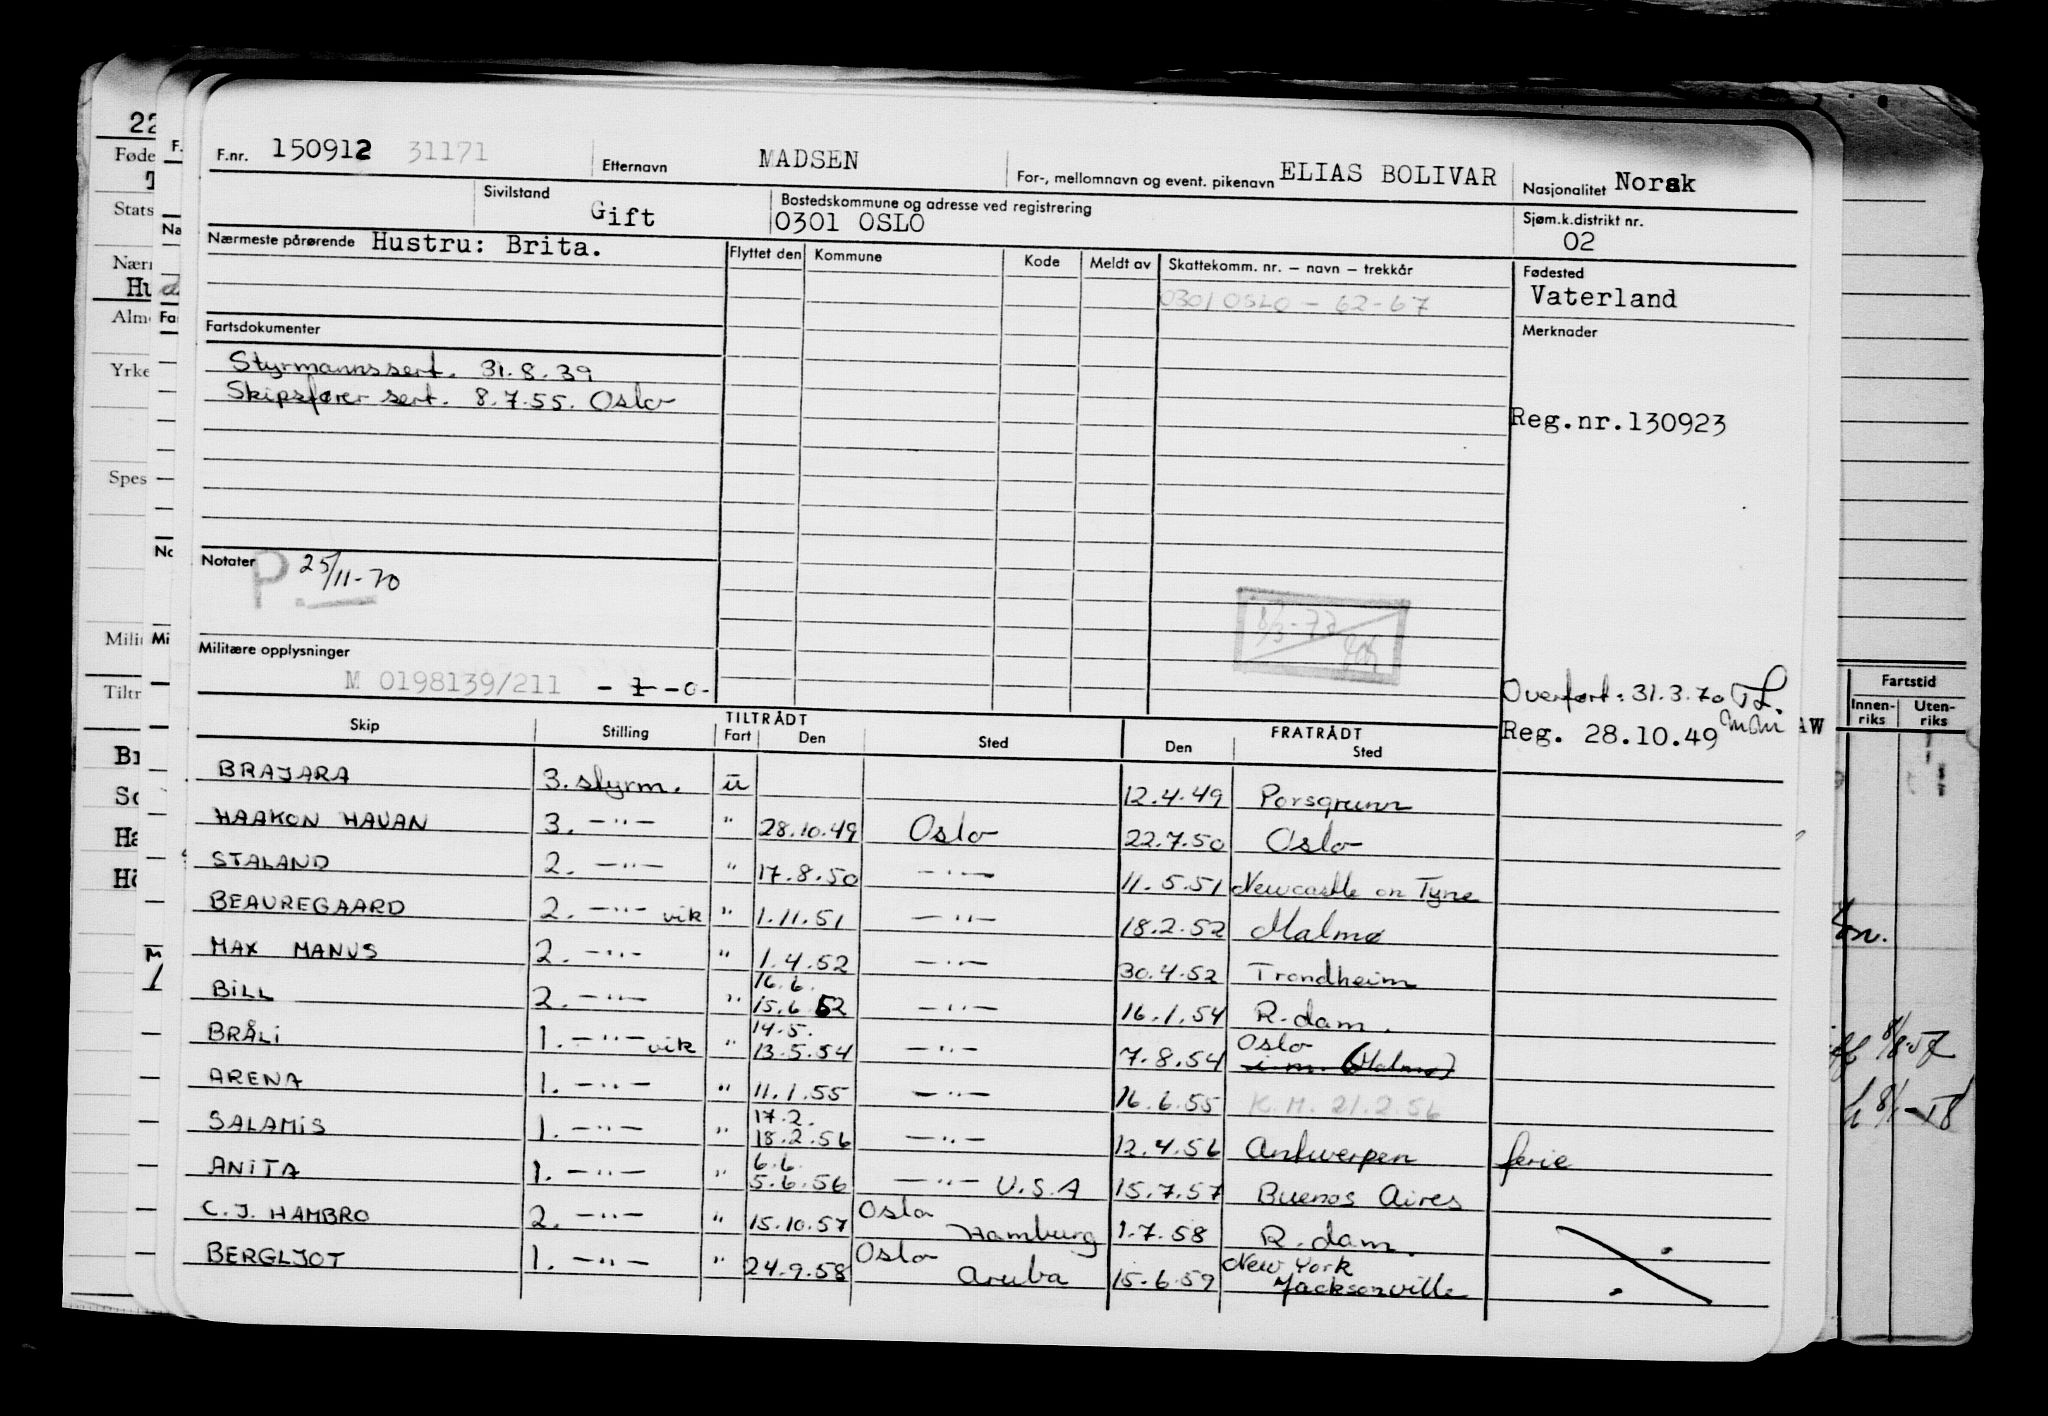 F.nr. 150912 31171 Etternavn MADSEN For-, mellomnavn og event. pikenavn ELIAS BOLIVAR Nasjonalitet Norsk
Sivilstand Gift Bostedskommune og adresse ved registrering 0301 OSLO Sjøm.k.distrikt nr. 02
Nærmeste pårørende Hustru: Brita. Flyttet den Kommune Kode Meldt av Skattekomm. nr. — navn — trekkår Fødested
0301 OSLO - 62-67 Vaterland
Fartsdokumenter Merknader
Styrmannssert. 31.8.39
Skipsfører sert. 8.7.55. Oslo
Reg.nr.130923
Notater P. 25/11-70
Militære opplysninger
M 0198139/211 - 1 - 0-
Overført: 31.3.70 TL.
Reg. 28.10.49 AW
Skip Stilling TILTRÅDT Fart Den Sted FRATRÅDT Den Sted
BRAJARA 3. styrm. u 12.4.49 Porsgrunn
HAAKON HAUAN 3. —"— " 28.10.49 Oslo 22.7.50 Oslo
STALAND 2. —"— " 17.8.50 —"— 11.5.51 Newcastle on Tyne
BEAUREGAARD 2. —"— vik " 1.11.51 —"— 18.2.52 Malmø
MAX MANUS 2. —"— " 1.4.52 —"— 30.4.52 Trondheim
16.6.
BILL 2. —"— " 15.6.52 —"— 16.1.54 R.dam.
14.5. Oslo
BRÅLI 1. —"— vik " 13.5.54 —"— 7.8.54 i.m. (Malmø)
ARENA 1. —"— " 11.1.55 —"— 16.6.55 K.M. 21.2.56
17.2.
SALAMIS 1. —"— " 18.2.56 —"— 12.4.56 Antwerpen ferie
6.6.
ANITA 1. —"— " 5.6.56 —"— U.S.A 15.7.57 Buenos Aires
C.J. HAMBRO 2. —"— " 15.10.57 Oslo Hamburg 1.7.58 R.dam.
BERGLJOT 1. —"— " 24.9.58 Oslo Aruba 15.6.59 New York Jacksonville
22
Føde
Stats
Nærr
Hu
Alm
Yrke
Spes
Mili
Tiltr
F.
Na
Fa
No
Mi
Fartstid
Innen-riks Uten-riks